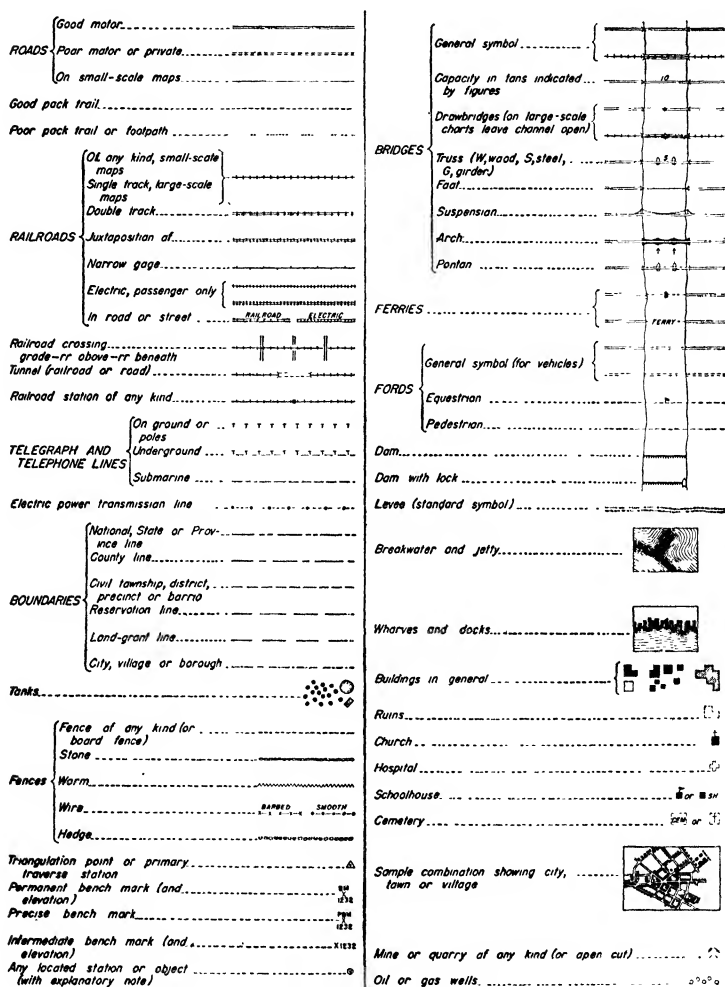 Good motor
ROADS
Poor motor or private
On small-scale maps
Good pack trail
Poor pack trail or footpath
Of any kind, small-scale
maps
Single track, large-scale
maps
Double track
RAILROADS
Juxtaposition of
Narrow gage
Electric, passenger only
In road or street
RAILROAD ELECTRIC
Railroad crossing
grade-rr above-rr beneath
Tunnel (railroad or road)
Railroad station of any kind
On ground or
poles
TELEGRAPH AND
TELEPHONE LINES
Underground
T T T T T T T T T
Submarine
Electric power transmission line
National, State or Prov-
ince line
County line
Civil township, district,
precinct or barrio
BOUNDARIES
Reservation line
Land-grant line
City, village or borough
Tanks
Fence of any kind (or
board fence)
Stone
Fences
Worm
Wire
BARBED SMOOTH
Hedge
Triangulation point or primary
traverse station
Permanent bench mark (and
elevation)
BM
X
1232
Precise bench mark
PBM
X
1232
Intermediate bench mark (and
elevation)
X1232
Any located station or object
(with explanatory note)
General symbol
Capacity in tons indicated
by figures
10
Drawbridges (on large-scale
charts leave channel open)
BRIDGES
Truss (W, wood, S, steel,
G, girder)
S
Foot
Suspension
Arch
Ponton
FERRIES
FERRY
General symbol (for vehicles)
FORDS
Equestrian
Pedestrian
Dam
Dam with lock
Levee (standard symbol)
Breakwater and jetty
Wharves and docks
Buildings in general
Ruins
Church
Hospital
Schoolhouse
or SH
Cemetery
CEM or
Sample combination showing city,
town or village
Mine or quarry of any kind (or open cut)
Oil or gas wells